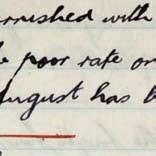 urnished with
poor rate on
August has b